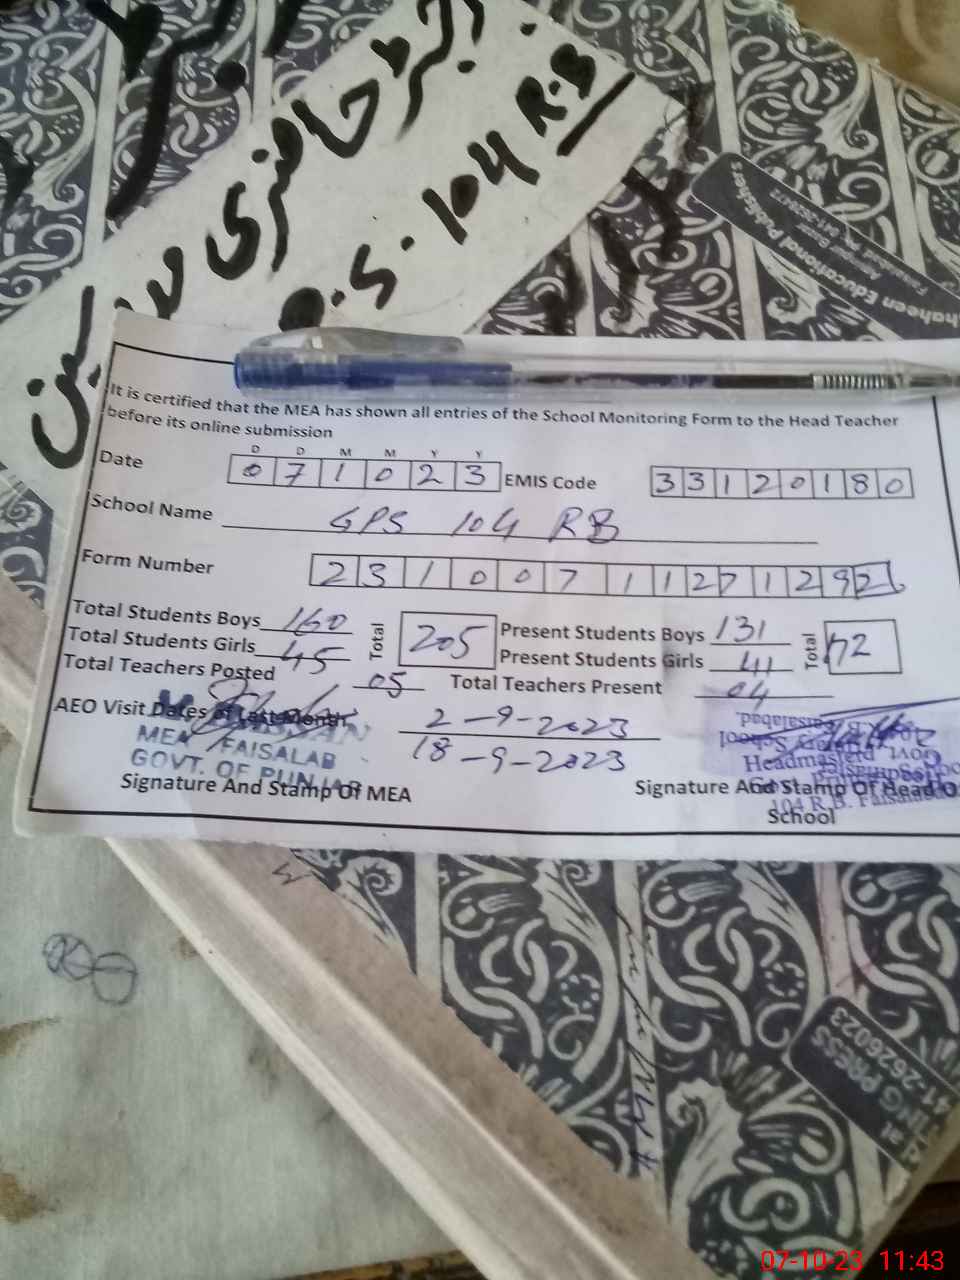 رجسٹر حاضری مدرسین
P.S. 104 R.B
Shaheen Educational Publishers
It is certified that the MEA has shown all entries of the School Monitoring Form to the Head Teacher
before its online submission
D D M M Y Y
Date 0 7 1 0 2 3 EMIS Code 3 3 1 2 0 1 8 0
School Name GPS 104 RB
Form Number 2 3 1 0 0 7 1 1 2 7 1 2 9 2
Total Students Boys 160 Total 205 Present Students Boys 131 Total 172
Total Students Girls 45 Present Students Girls 41
Total Teachers Posted 05 Total Teachers Present 04
AEO Visit Dates of Last Month 2-9-2023
18-9-2023
MEA FAISALABAD
GOVT. OF PUNJAB
Signature And Stamp Of MEA
Signature And Stamp Of Head Of
School
Headmaster
Govt. Primary School
104 R.B. Faisalabad
PRESS
41-2626023
07-10-23 11:43